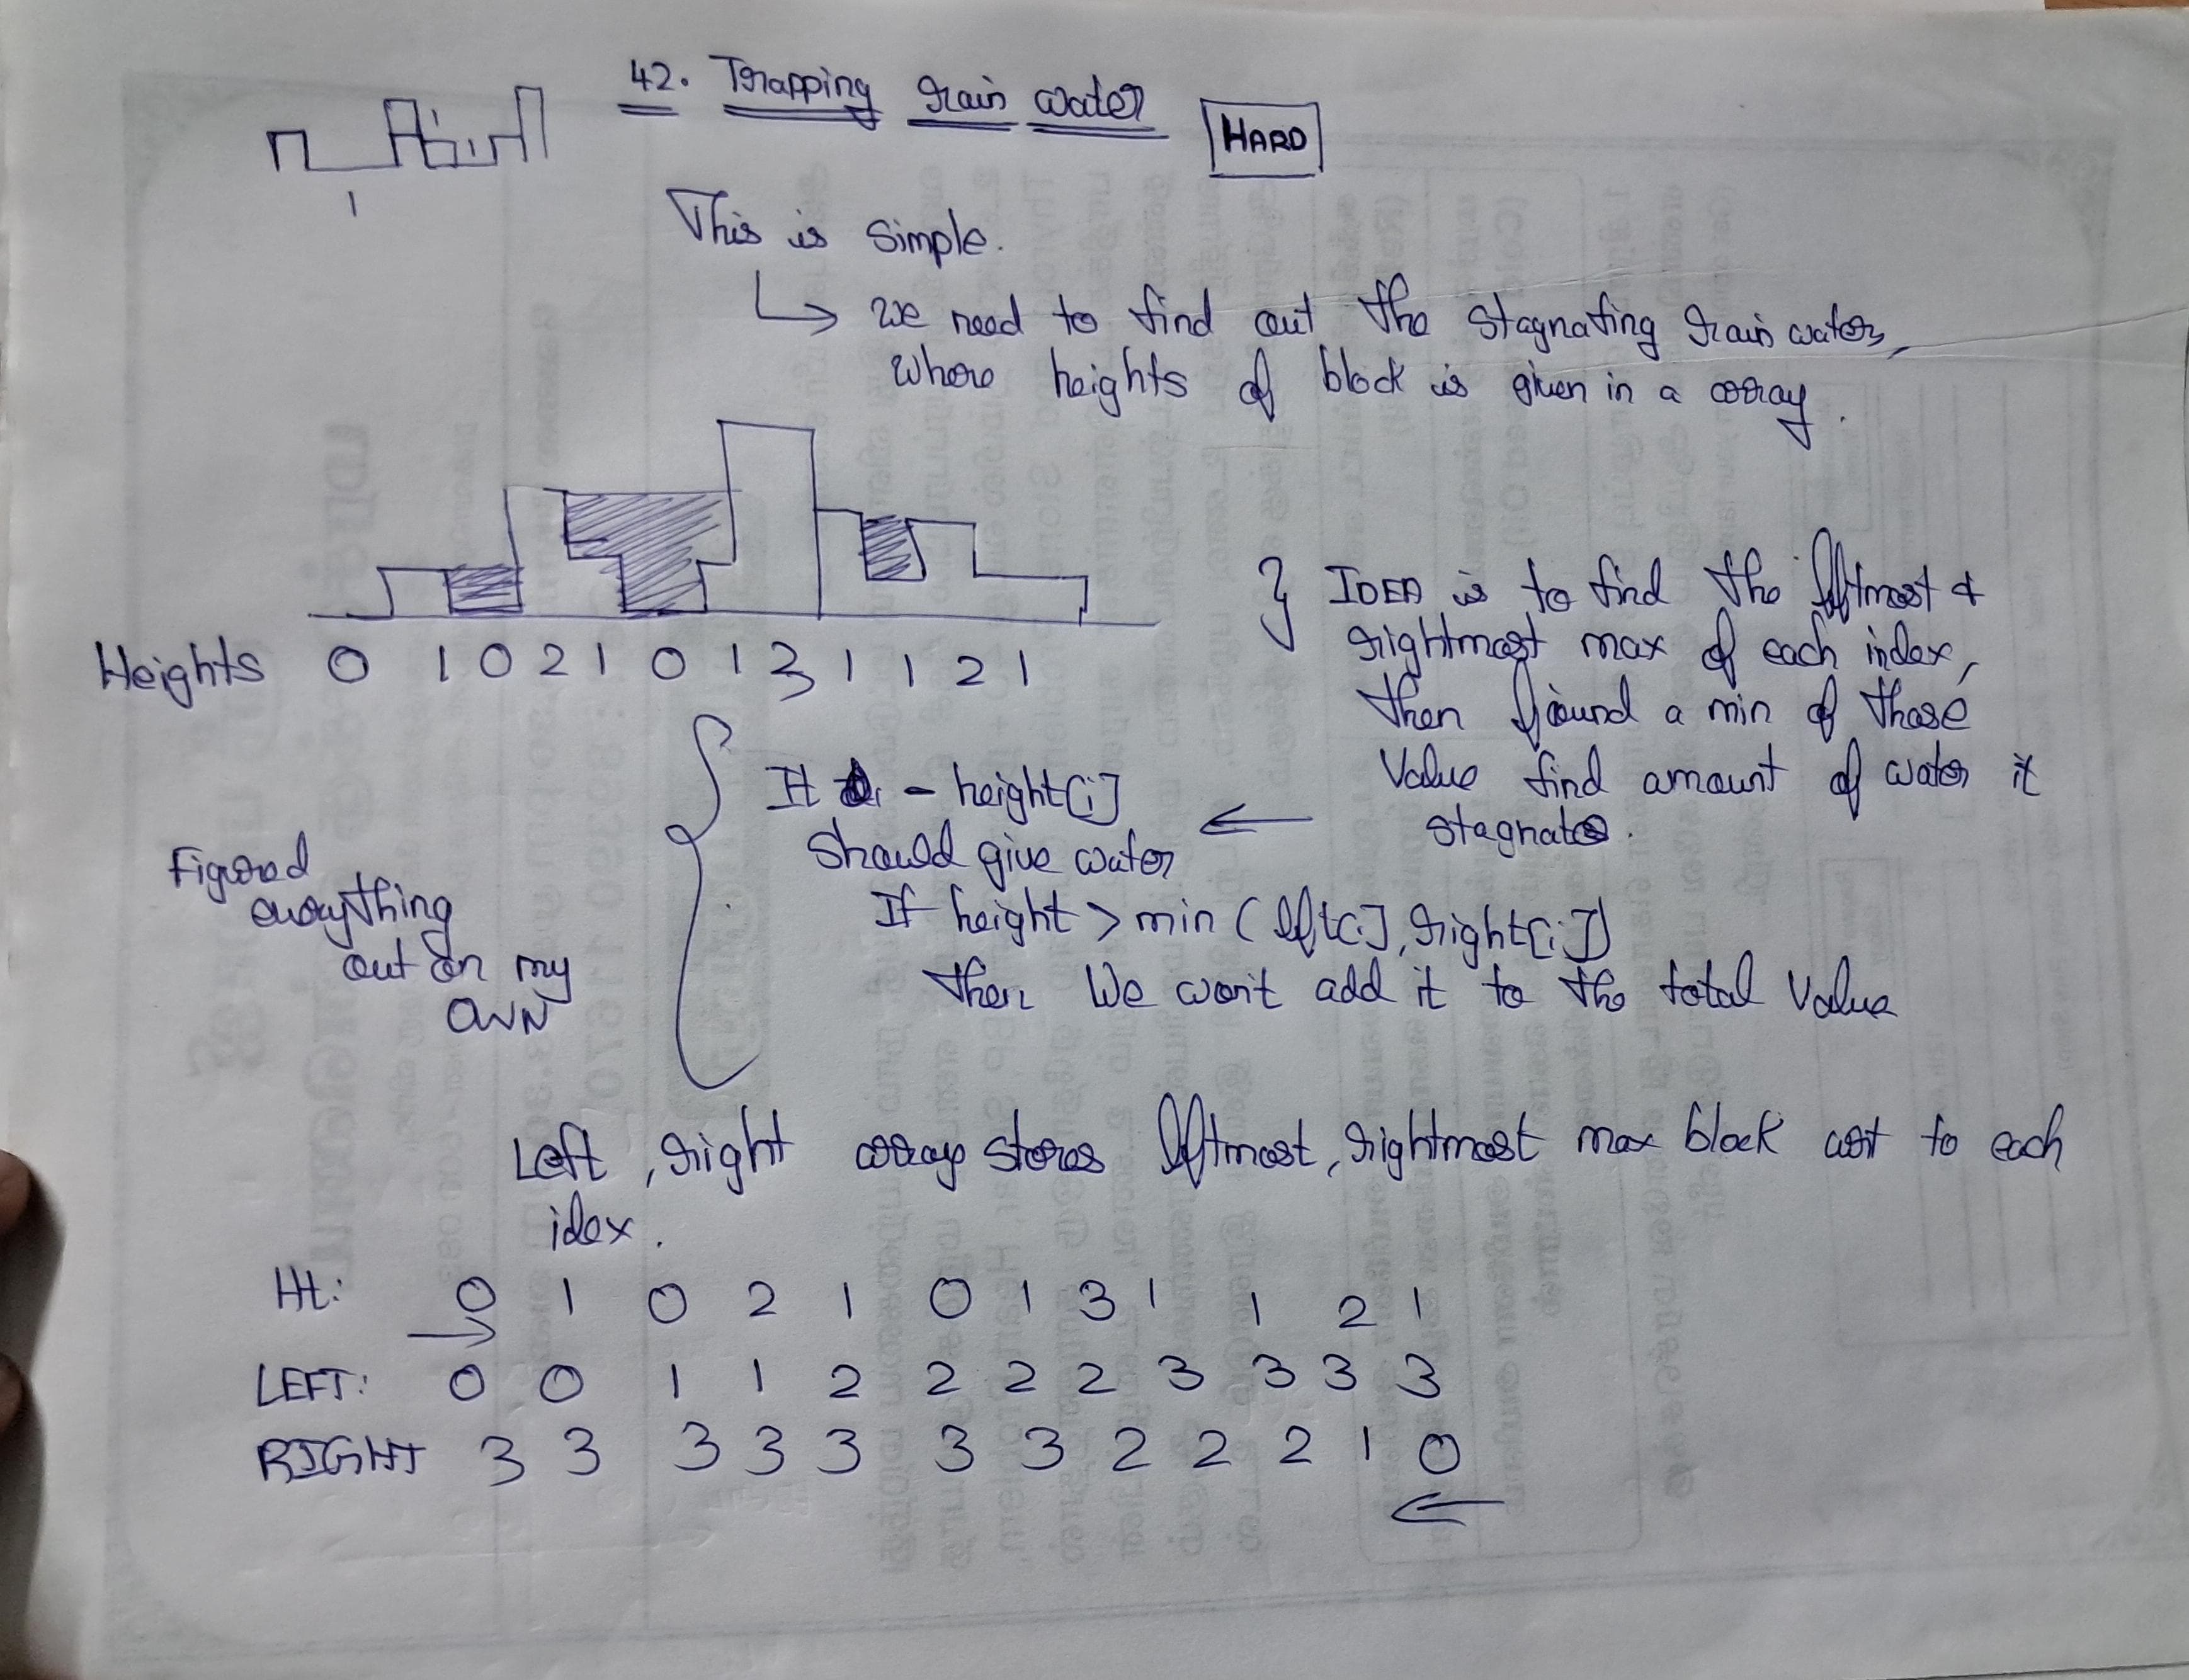 42. Trapping rain water
HARD
This is simple.
↳ we need to find out the stagnating rain water,
where heights of block is given in a array.
Heights 0 1 0 2 1 0 1 3 1 1 2 1
} IDEA is to find the leftmost &
rightmost max of each index,
then found a min of those
value find amount of water it
stagnates.
It - height[i] ←
should give water
If height > min (left[i], right[i])
then we won't add it to the total value
Figured
everything
out on my
OWN
Left, right array stores leftmost, rightmost max block wrt to each
idex.
Ht: 0 1 0 2 1 0 1 3 1 1 2 1
→
LEFT: 0 0 1 1 2 2 2 2 3 3 3 3
RIGHT 3 3 3 3 3 3 3 2 2 2 1 0
←